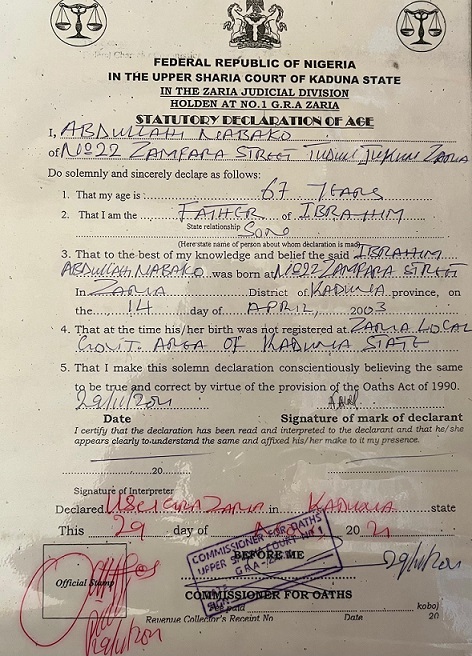 FEDERAL REPUBLIC OF NIGERIA
IN THE UPPER SHARIA COURT OF KADUNA STATE
IN THE ZARIA JUDICIAL DIVISION
HOLDEN AT NO.1 G.R.A ZARIA
STATUTORY DECLARATION OF AGE
I, ABDULLAHI NABAKO
of No 22 ZAMFARA STREET TUDUN JUKUN ZARIA
Do solemnly and sincerely declare as follows:
1. That my age is 67 YEARS
2. That I am the FATHER of IBRAHIM
State relationship SON
(Here state name of person about whom declaration is made)
3. That to the best of my knowledge and belief the said IBRAHIM
ABDULLAHI NABAKO was born at No 22 ZAMFARA STREET
In ZARIA District of KADUNA province, on
the 14 day of APRIL, 2003
4. That at the time his/her birth was not registered at ZARIA LOCAL
GOVT. AREA OF KADUNA STATE
5. That I make this solemn declaration conscientiously believing the same
to be true and correct by virtue of the provision of the Oaths Act of 1990.
29/11/2021
Date Signature of mark of declarant
I certify that the declaration has been read and interpreted to the declarant and that he/she
appears clearly to understand the same and affixed his/her make to it my presence.
20
Signature of Interpreter
Declared ZARIA in KADUNA state
This 29 day of 20 21
COMMISSIONER FOR OATHS
UPPER SHARIA COURT NO.1
G.R.A - ZARIA
BEFORE ME
29/11/2021
Official Stamp
COMMISSIONER FOR OATHS
Fee paid kobo)
Revenue Collector's Receipt No Date 20
29/11/2021